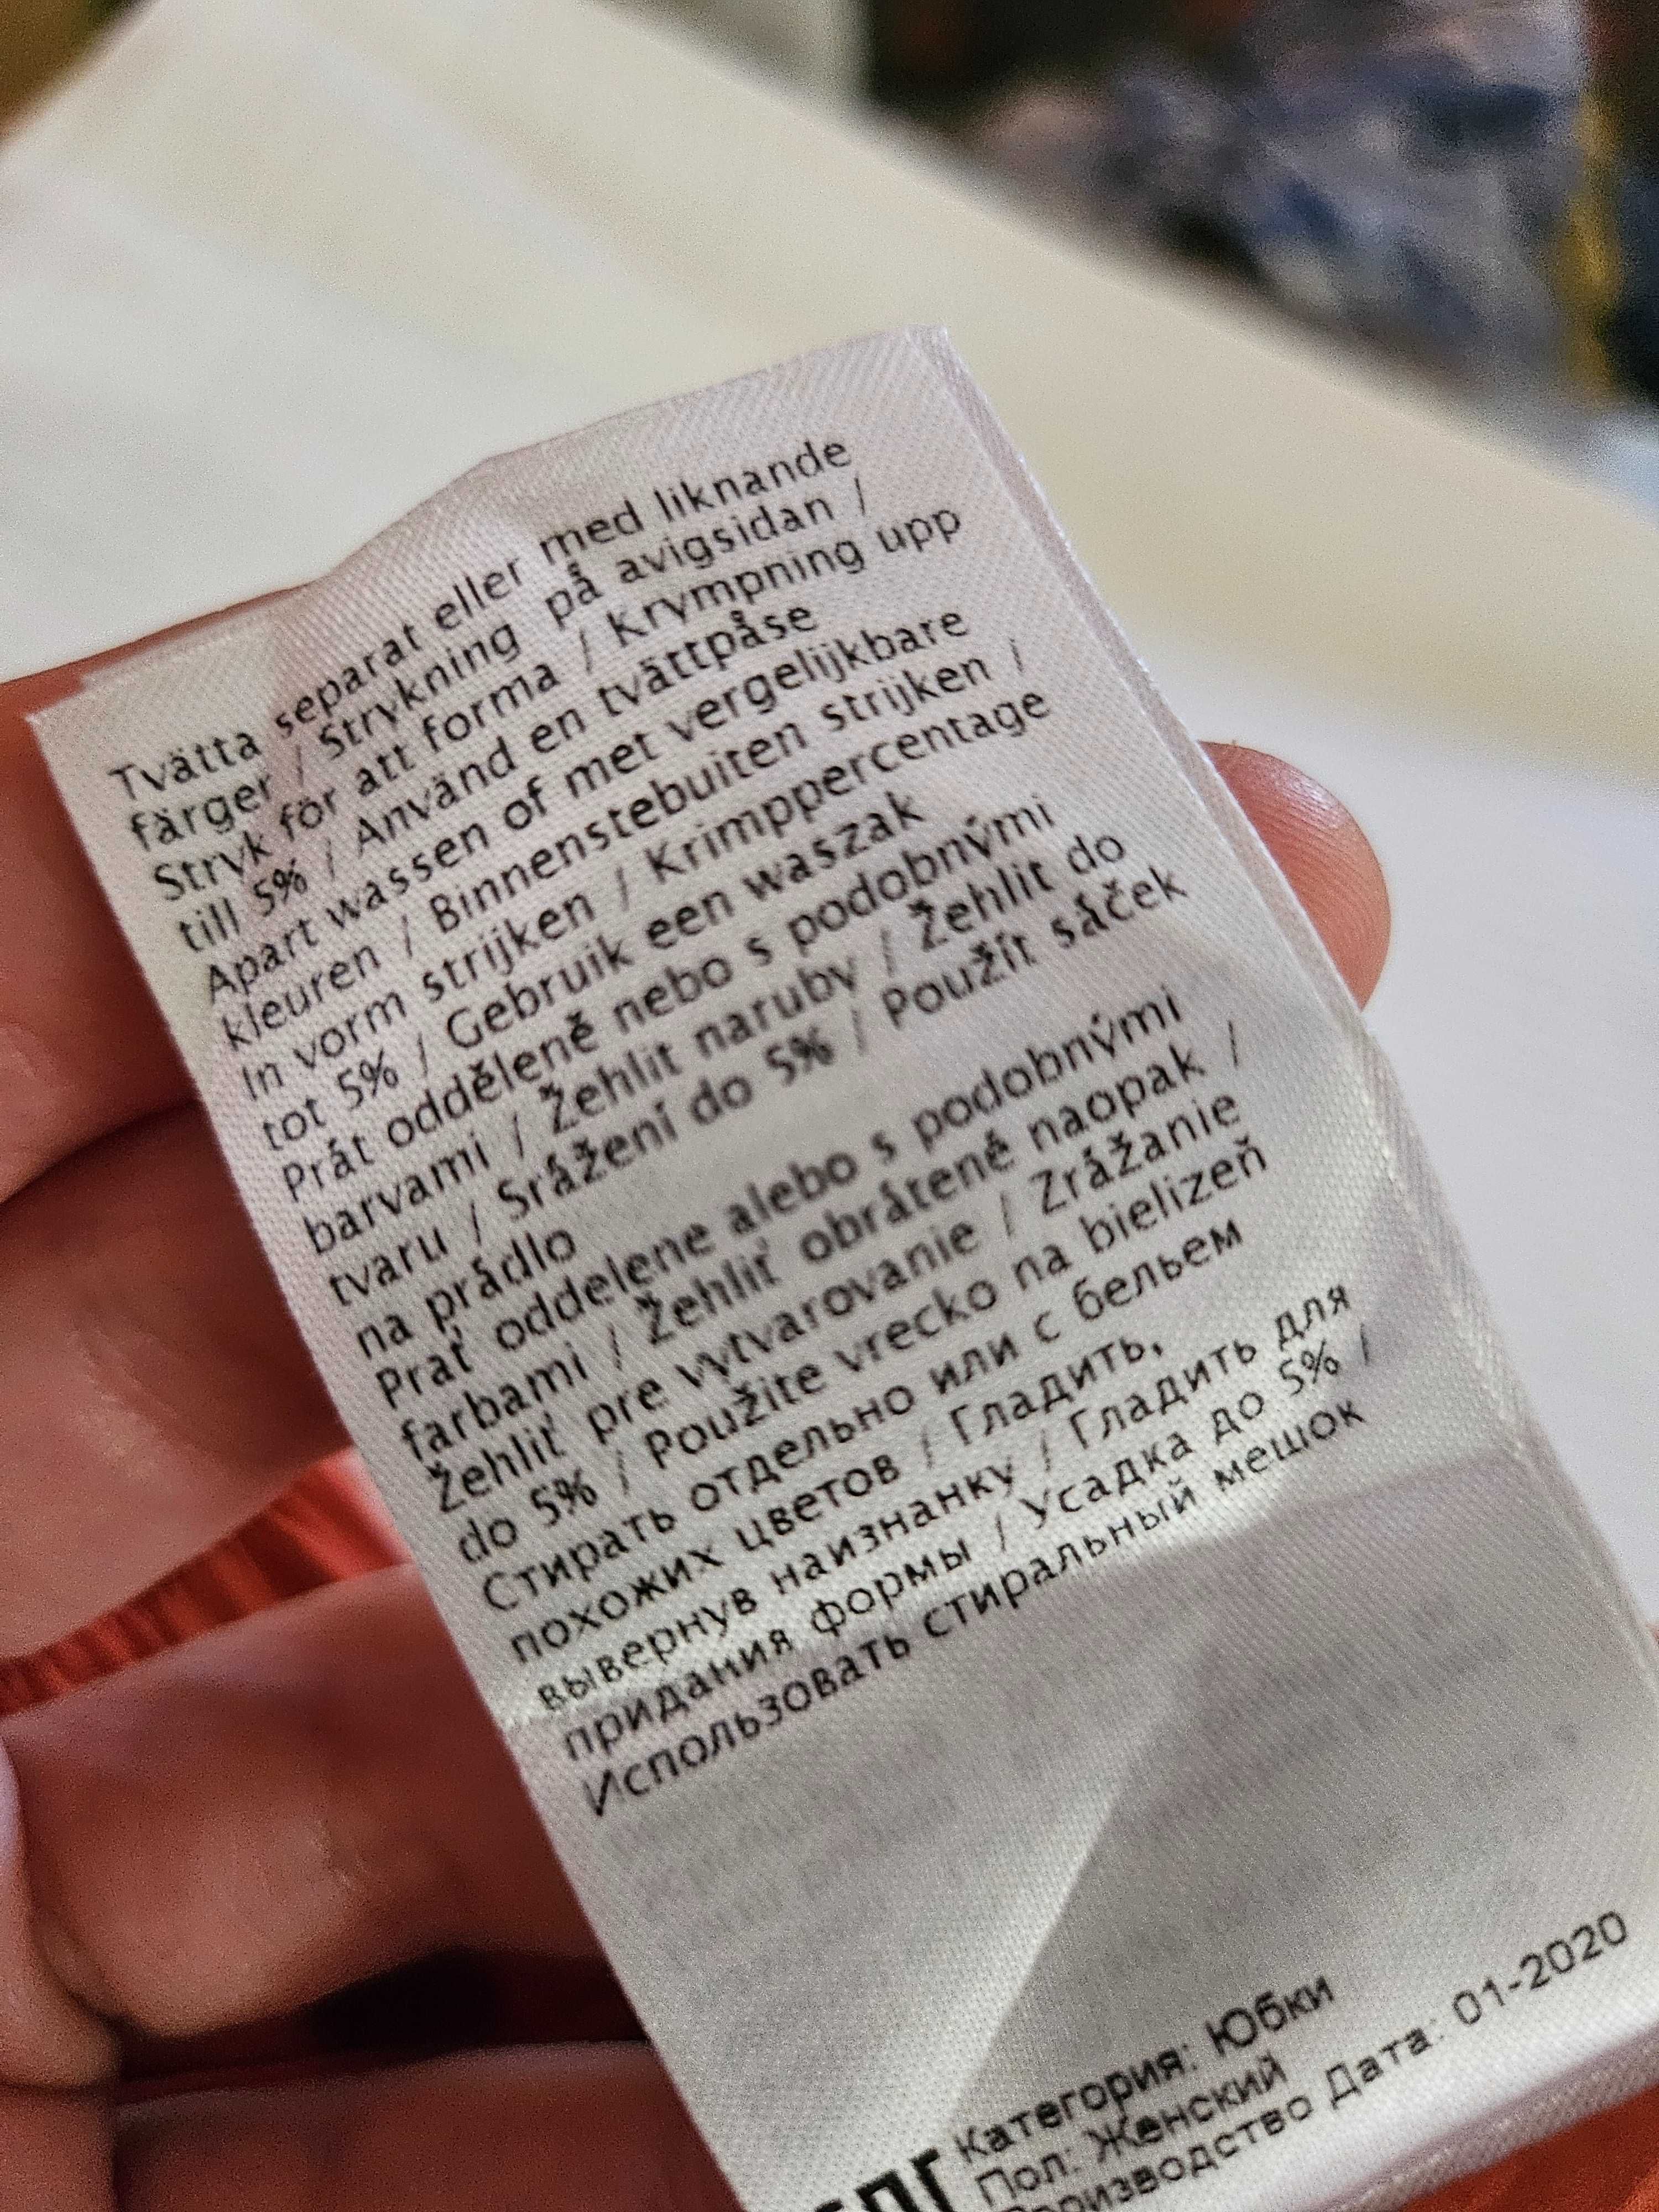 Tvätta separat eller med liknande
färger / Strykning på avigsidan /
Stryk för att forma / Krympning upp
till 5% / Använd en tvättpåse
Apart wassen of met vergelijkbare
kleuren / Binnenstebuiten strijken /
In vorm strijken / Krimppercentage
tot 5% / Gebruik een waszak
Prát odděleně nebo s podobnými
barvami / Žehlit naruby / Žehlit do
tvaru / Srážení do 5% / Použít sáček
na prádlo
Prať oddelene alebo s podobnými
farbami / Žehliť obrátené naopak /
Žehliť pre vytvarovanie / Zrážanie
do 5% / Použite vrecko na bielizeň
Стирать отдельно или с бельем
похожих цветов / Гладить,
вывернув наизнанку / Гладить для
придания формы / Усадка до 5% /
Использовать стиральный мешок
Категория: Юбки
Пол: Женский
Производство Дата: 01-2020